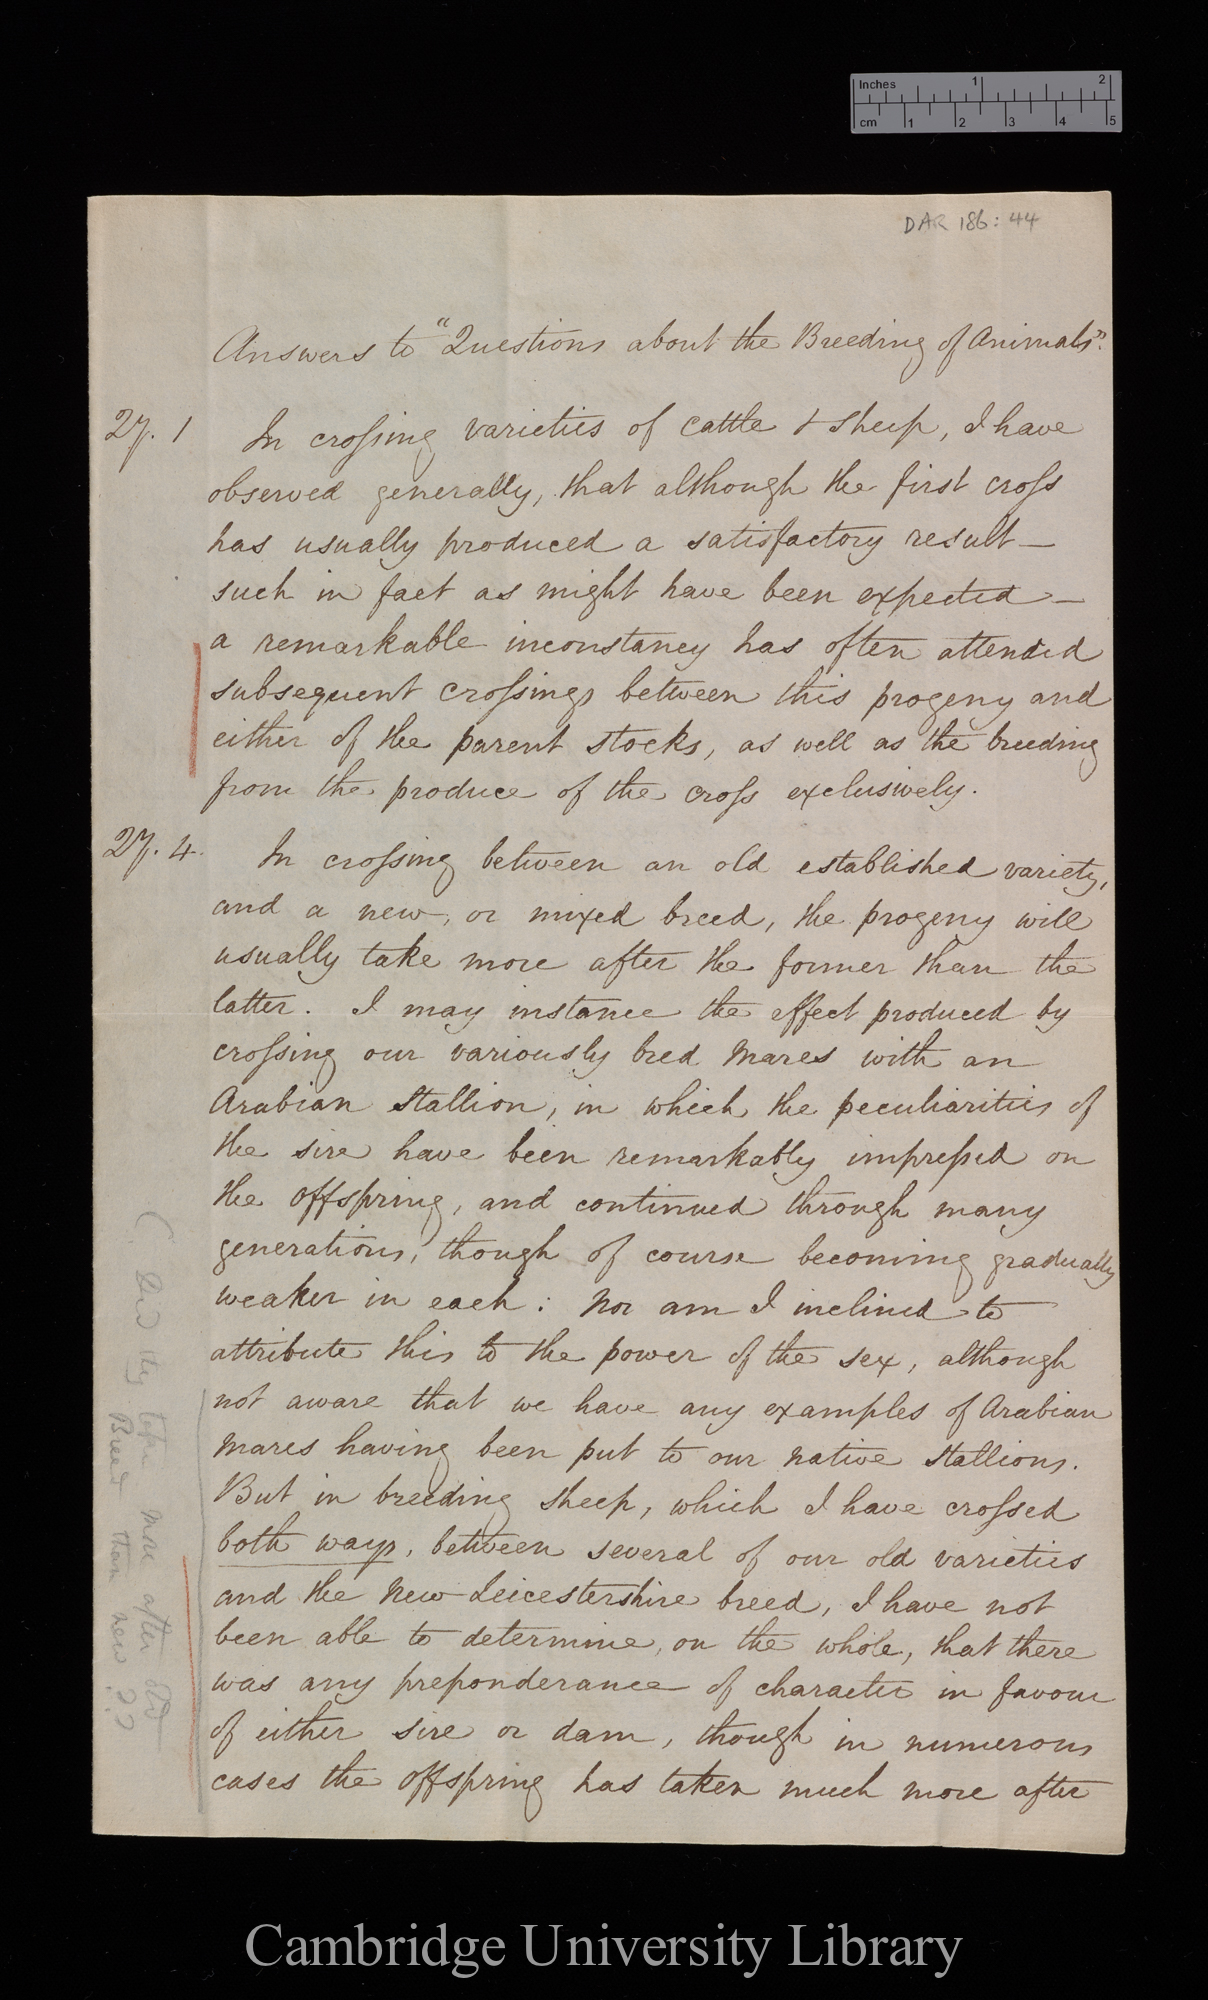 Inches 1 2
cm 1 2 3 4 5
DAR 186:44
Answers to "Questions about the Breeding of Animals".
2y. 1 In crossing varieties of cattle & sheep, I have
observed generally, that although the first cross
has usually produced a satisfactory result —
such in fact as might have been expected —
a remarkable inconstancy has often attended
subsequent crossings between this progeny and
either of the parent stocks, as well as the breeding
from the produce of the cross exclusively.
2y. 4. In crossing between an old established variety,
and a new, or mixed breed, the progeny will
usually take more after the former than the
latter. I may instance the effect produced by
crossing our variously bred mares with an
Arabian stallion, in which the peculiarities of
the sire have been remarkably impressed on
the offspring, and continued through many
generations, though of course becoming gradually
weaker in each: nor am I inclined to
attribute this to the power of the sex, although
not aware that we have any examples of Arabian
mares having been put to our native stallions.
But in breeding sheep, which I have crossed
both ways, between several of our old varieties
and the new Leicestershire breed, I have not
been able to determine, on the whole, that there
was any preponderance of character in favour
of either sire or dam, though in numerous
cases the offspring has taken much more after
Did they take more after old
Breed than new??
Cambridge University Library